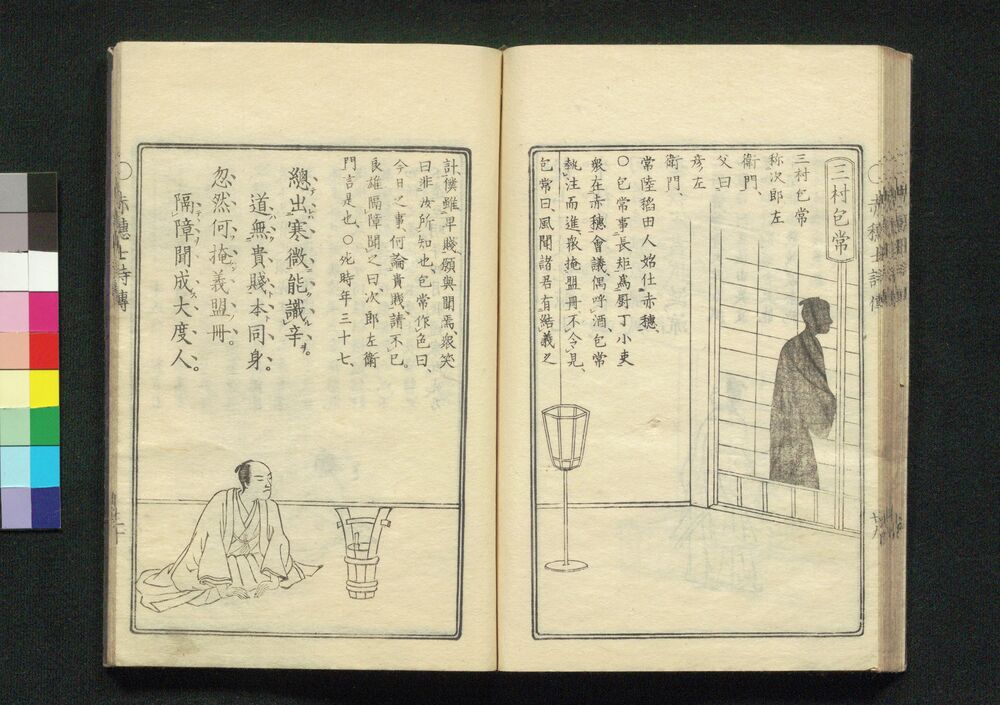 三村包常
三村包常
称次郎左
衛門、
父曰
彦左
衛門、
常陸稻田人始仕赤穗
○包常事長矩爲厨丁小吏
衆在赤穗會議偶呼酒、包常
執注而進衆掩盟冊不令見、
包常曰風聞諸君有結義之
計、僕雖卑賤願與聞焉衆笑
曰非汝所知也、包常作色曰、
今日之事何論貴賤請不已
良雄隔障聞之曰、次郎左衛
門言是也、○死時年三十七、
總出寒微能識辛。
道無貴賤本同身。
忽然何掩義盟冊。
隔障聞成大度人。